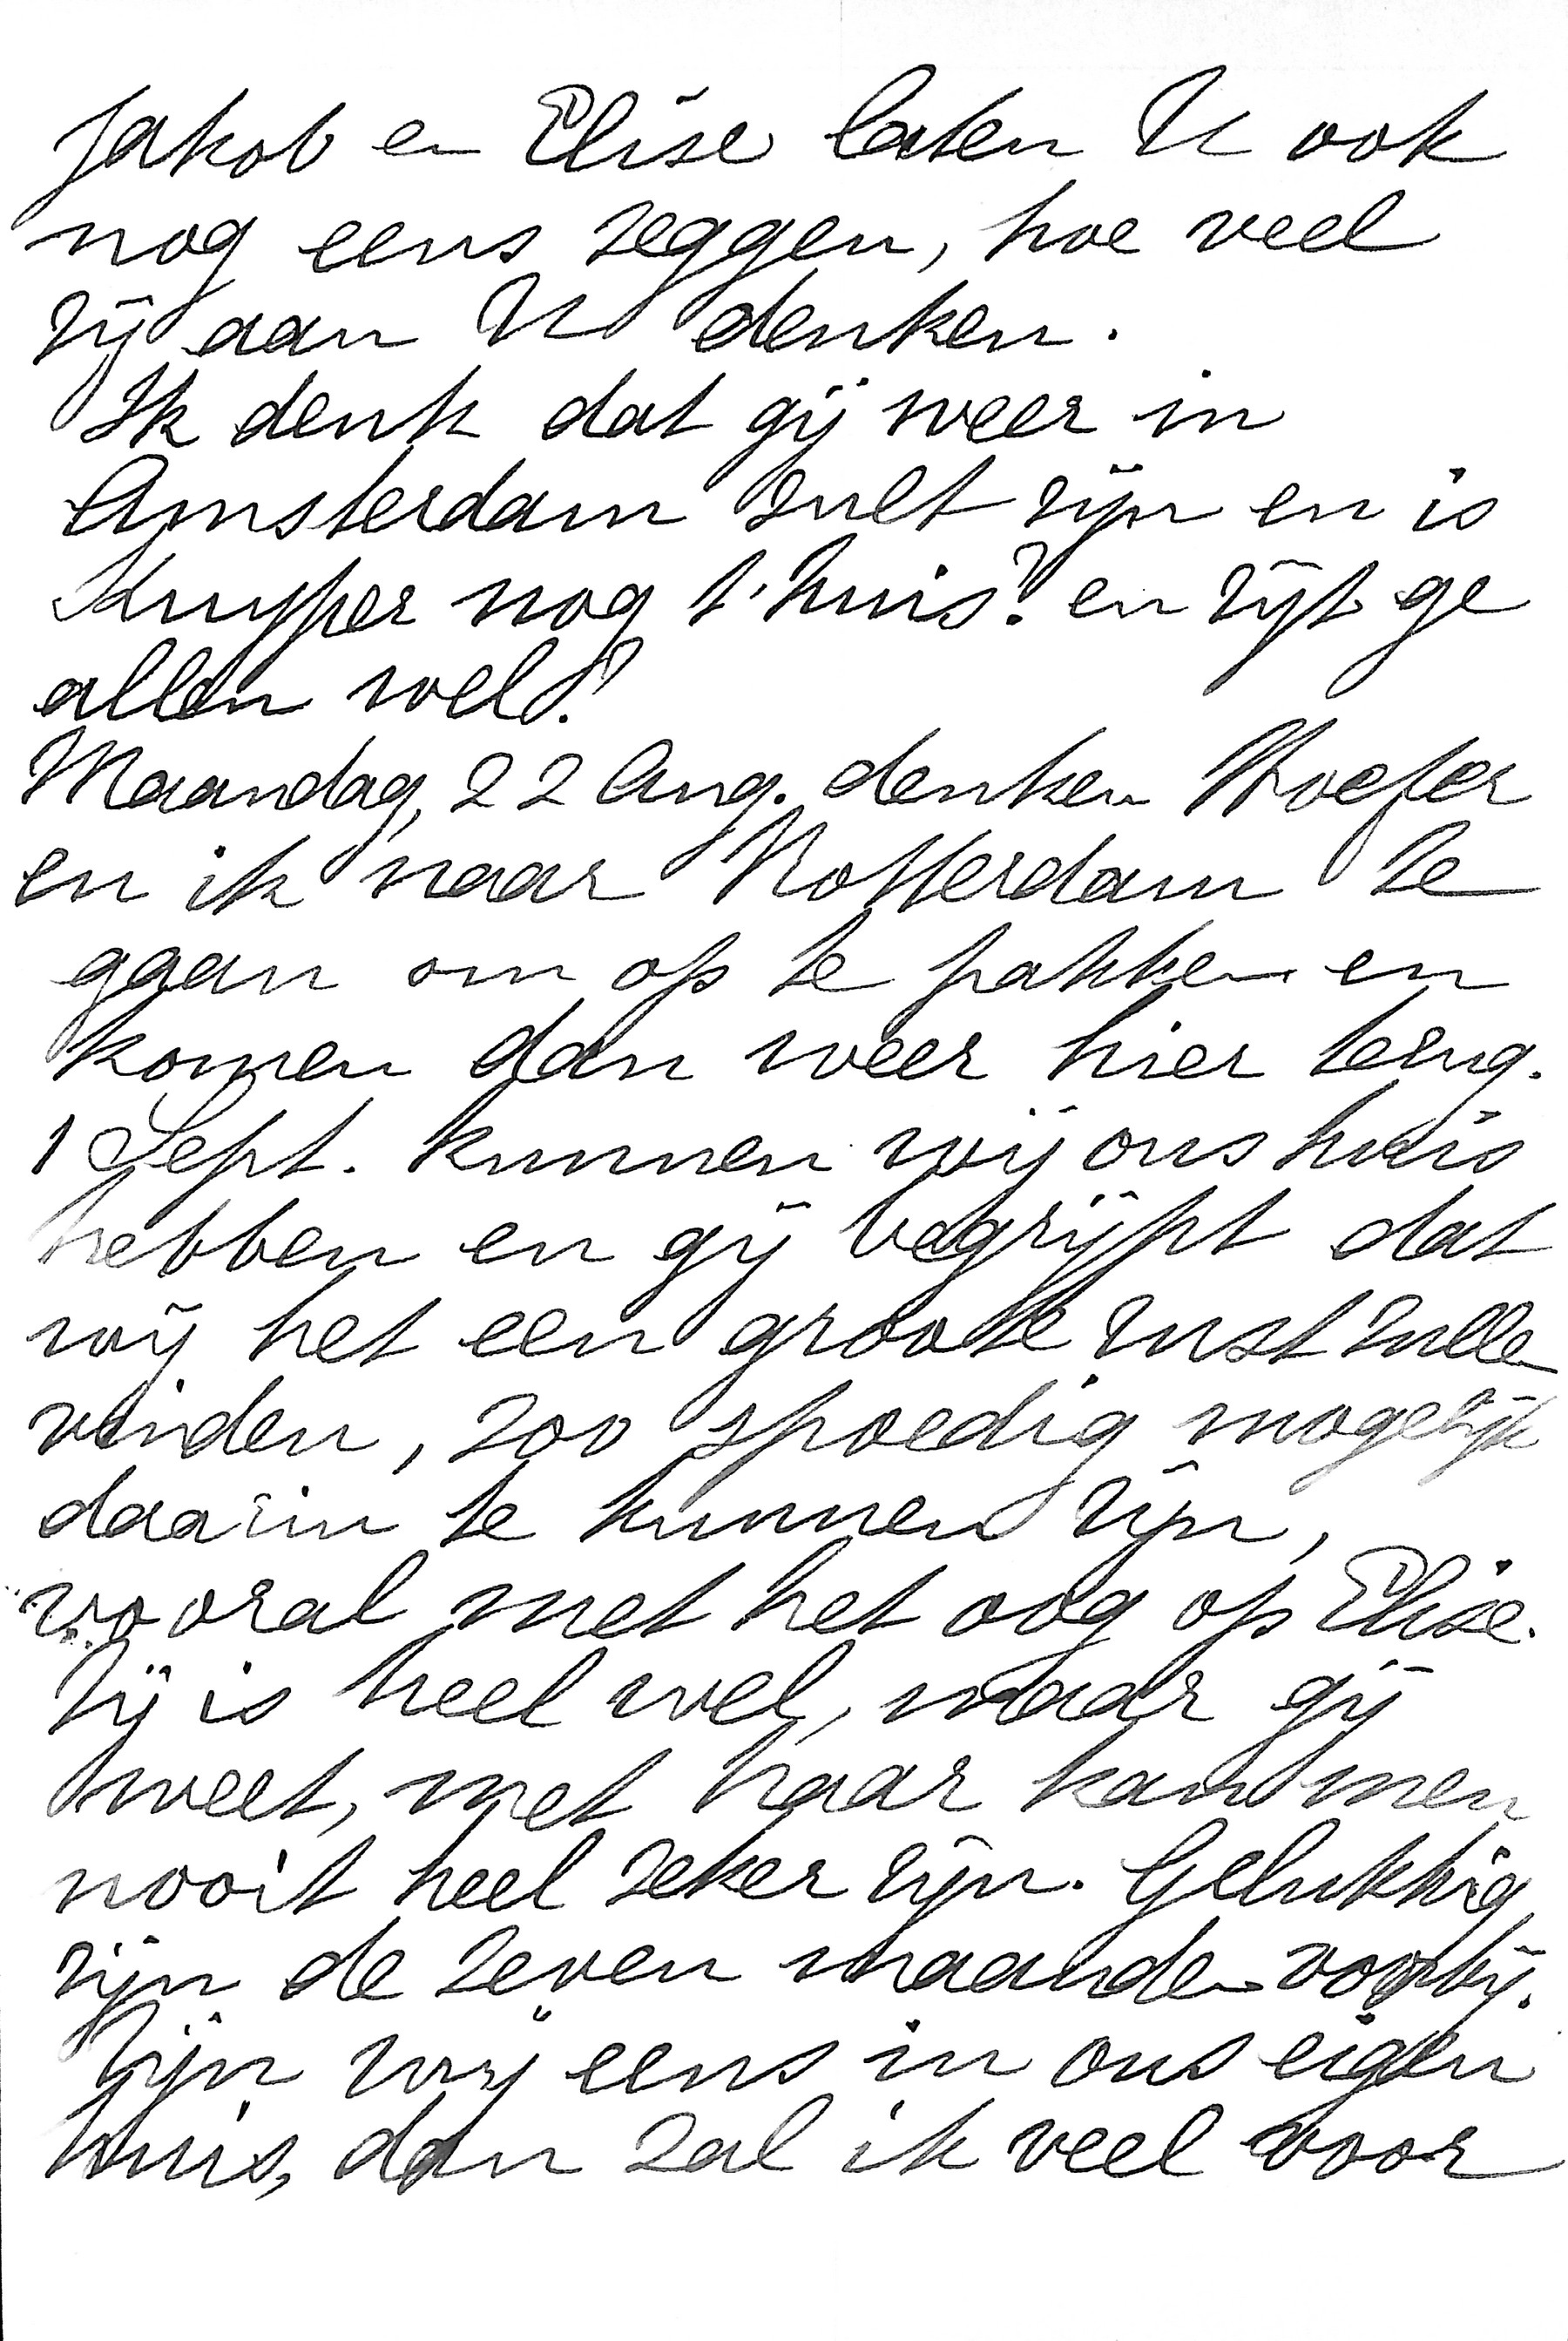 Jakob en Elise laten U ook
nog eens zeggen, hoe veel
zij aan U denken.
Ik denk dat gij weer in
Amsterdam zult zijn en is
Kuyper nog t'huis? en zijt ge
allen wel?
Maandag, 22 Aug. denken
en ik naar Rotterdam te
gaan om op te pakken en
komen dan weer hier terug.
1 Sept. kunnen wij ons huis
hebben en gij begrijpt dat
wij het een groote rust zullen
vinden, zoo spoedig mogelijk
daarin te kunnen zijn,
vooral met het oog op Elise.
Zij is heel wel, maar gij
weet, met haar kan men
nooit heel zeker zijn. Gelukkig
zijn de zeven maanden voorbij.
Zijn wij eens in ons eigen
huis, dan zal ik veel voor